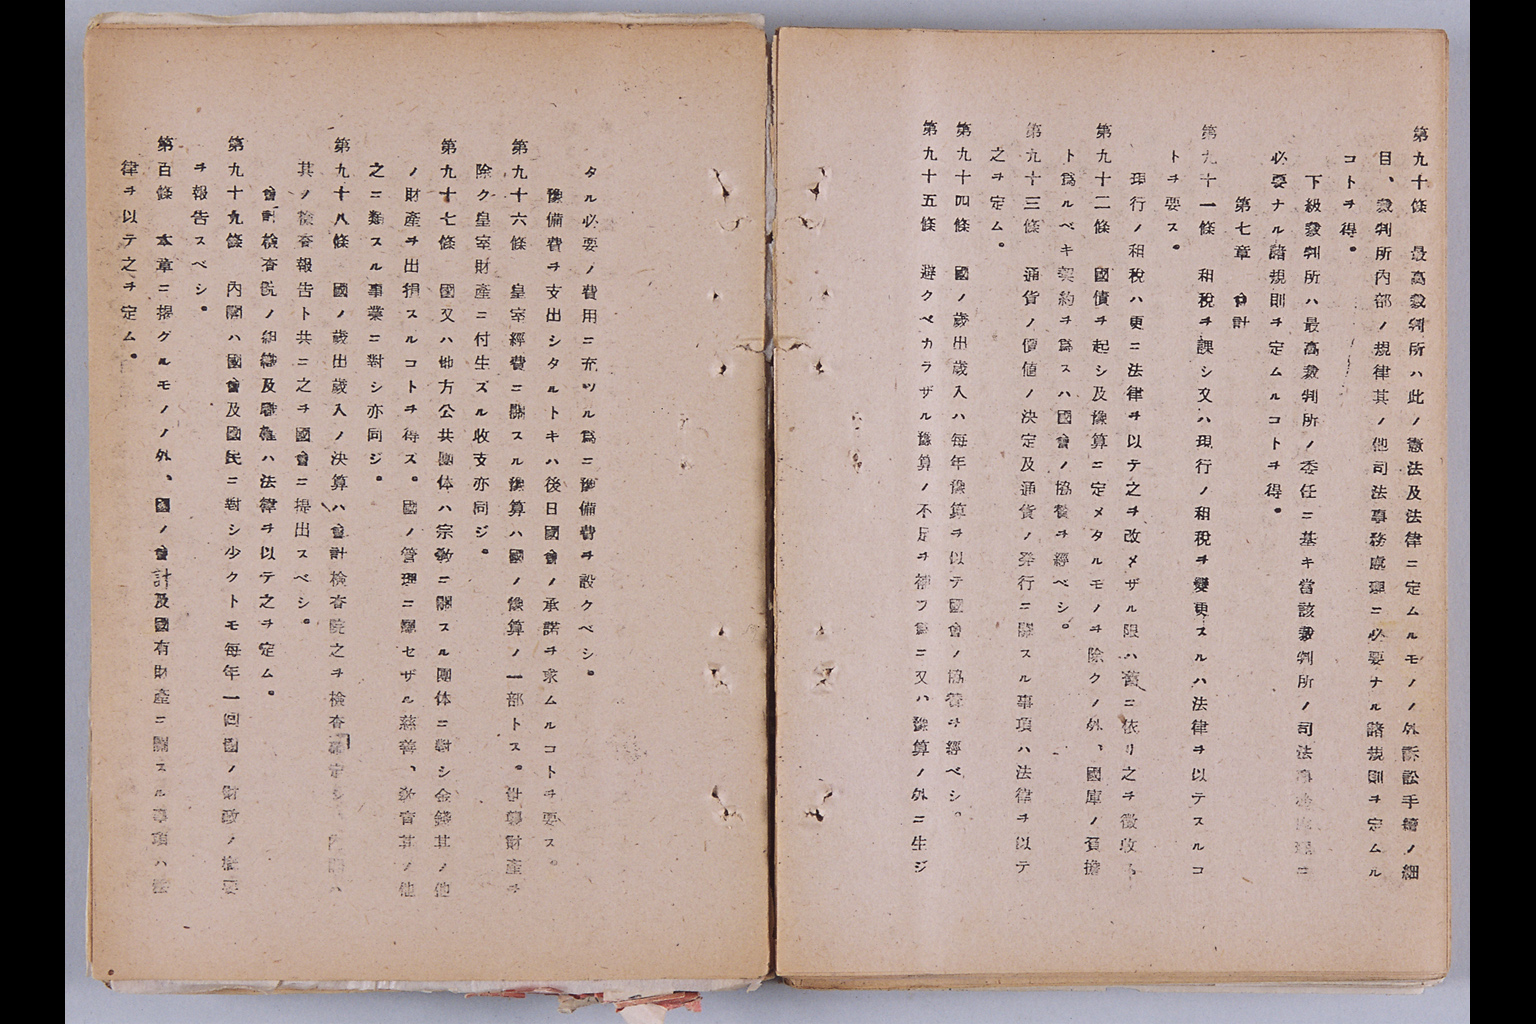 第九十條　最高裁判所ハ此ノ憲法及法律ニ定ムルモノノ外訴訟手續ノ細
目、裁判所内部ノ規律其ノ他司法事務處理ニ必要ナル諸規則ヲ定ムル
コトヲ得。
下級裁判所ハ最高裁判所ノ委任ニ基キ當該裁判所ノ司法事務處理ニ
必要ナル諸規則ヲ定ムルコトヲ得。
第七章　會計
第九十一條　租税ヲ課シ又ハ現行ノ租税ヲ變更スルハ法律ヲ以テスルコ
トヲ要ス。
現行ノ租税ハ更ニ法律ヲ以テ之ヲ改メザル限ハ舊ニ依リ之ヲ徴收ス
第九十二條　國債ヲ起シ及豫算ニ定メタルモノヲ除クノ外、國庫ノ負擔
ト爲ルベキ契約ヲ爲スハ國會ノ協賛ヲ經ベシ。
第九十三條　通貨ノ價値ノ決定及通貨ノ発行ニ關スル事項ハ法律ヲ以テ
之ヲ定ム。
第九十四條　國ノ歳出歳入ハ毎年豫算ヲ以テ國會ノ協賛ヲ經ベシ。
第九十五條　避クベカラザル豫算ノ不足ヲ補フ爲ニ又ハ豫算ノ外ニ生ジ
タル必要ノ費用ニ充ツル爲ニ豫備費ヲ設クベシ。
豫備費ヲ支出シタルトキハ後日國會ノ承諾ヲ求ムルコトヲ要ス。
第九十六條　皇室經費ニ關スル豫算ハ國ノ豫算ノ一部トス。世襲財產ヲ
除ク皇室財產ニ付生ズル收支亦同ジ。
第九十七條　國又ハ地方公共團体ハ宗敎ニ關スル團体ニ對シ金錢其ノ他
ノ財產ヲ出捐スルコトヲ得ズ。國ノ管理ニ屬セザル慈善、敎育其ノ他
之ニ類スル事業ニ對シ亦同ジ。
第九十八條　國ノ歳出歳入ノ決算ハ會計検査院之ヲ検査確定シ、内閣ハ
其ノ検査報告ト共ニ之ヲ國會ニ提出スベシ。
會計検査院ノ組織及權限ハ法律ヲ以テ之ヲ定ム。
第九十九條　内閣ハ國會及國民ニ對シ少クトモ毎年一回國ノ財政ノ概要
ヲ報告スベシ。
第百條　本章ニ揭グルモノノ外、國ノ會計及國有財產ニ關スル事項ハ法
律ヲ以テ之ヲ定ム。